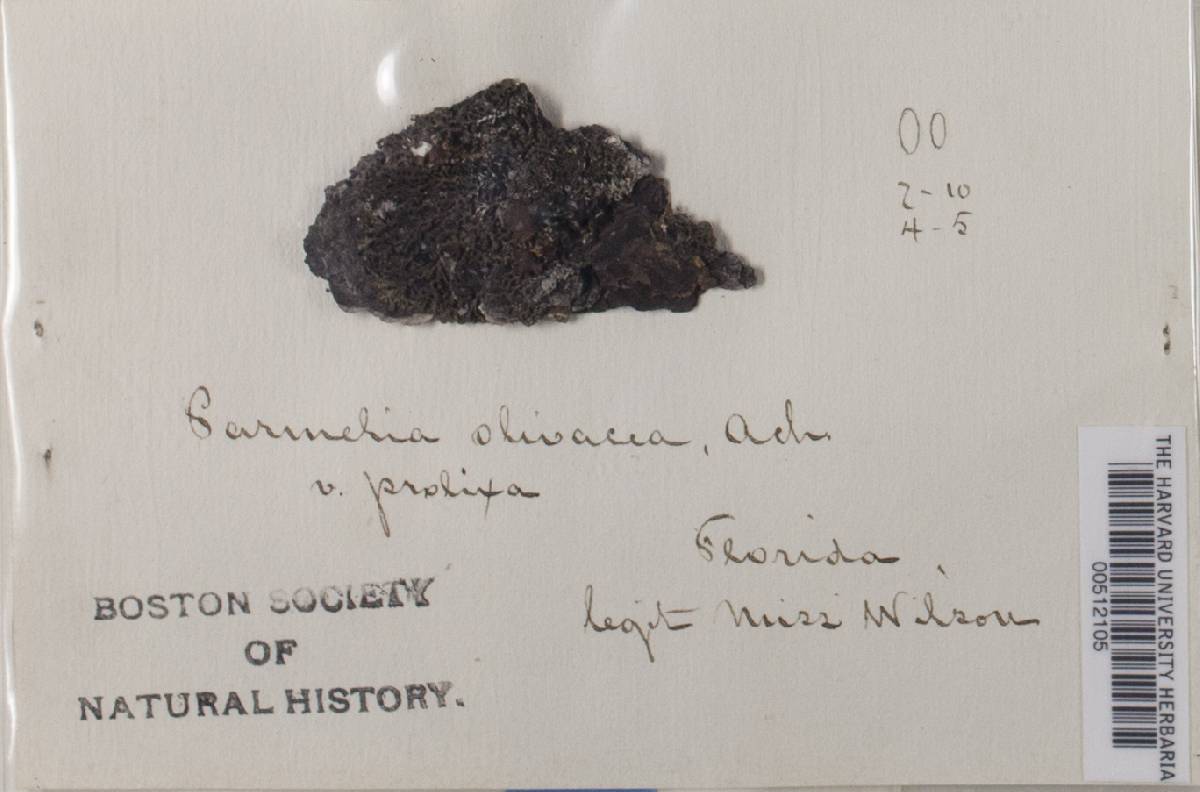 2-10
4-5
Parmelia olivacea, Ach.
v. prolixa
Florida,
legit Miss Wilson
BOSTON SOCIETY
OF
NATURAL HISTORY.
THE HARVARD UNIVERSITY HERBARIA
00512105